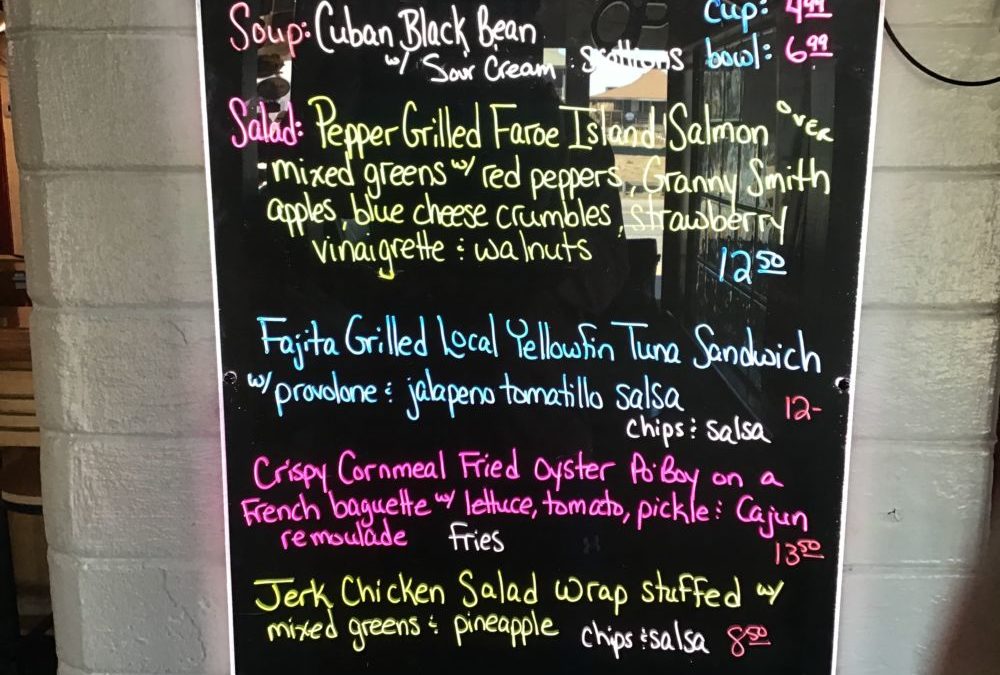 Soup: Cuban Black Bean cup: 4.99
w/ Sour Cream & scallions bowl: 6.99
Salad: Pepper Grilled Faroe Island Salmon over
mixed greens w/ red peppers, Granny Smith
apples, blue cheese crumbles, strawberry
vinaigrette & walnuts 12.50
Fajita Grilled Local Yellowfin Tuna Sandwich
w/ provolone & jalapeno tomatillo salsa 12-
chips & salsa
Crispy Cornmeal Fried Oyster Po'Boy on a
French baguette w/ lettuce, tomato, pickle & Cajun
remoulade Fries 13.50
Jerk Chicken Salad Wrap stuffed w/
mixed greens & pineapple chips & salsa 8.50